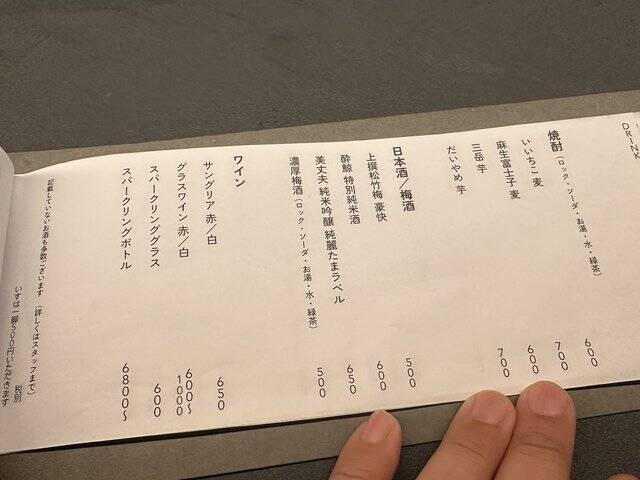 DRINK
焼酎（ロック・ソーダ・お湯・水・緑茶）
いいちこ 麦 600
麻生富士子 麦 700
三岳 芋 600
だいやめ 芋 700
日本酒／梅酒
上撰松竹梅 豪快 500
酔鯨 特別純米酒 600
美丈夫 純米吟醸 純麗たまラベル 650
濃厚梅酒（ロック・ソーダ・お湯・水・緑茶） 500
ワイン
サングリア 赤／白 650
グラスワイン 赤／白 600〜1000
スパークリンググラス 600
スパークリングボトル 6800〜
記載していないお酒も多数ございます（詳しくはスタッフまで）
税別
いすは一脚500円いただきます